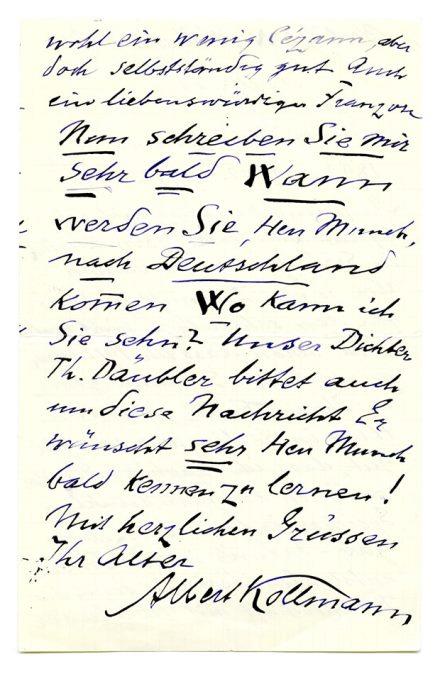 wohl ein wenig Cézann, aber
doch selbstständig gut Auch
ein liebenswürdiger Franzose
Nun schreiben Sie mir
sehr bald Wann
werden Sie, Herr Munch,
nach Deutschland
kom̄en Wo kann ich
Sie sehn? Unser Dichter
Th. Däubler bittet auch
um diese Nachricht Er
wünscht sehr Herr Munch
bald kennen zu lernen!
Mit herzlichen Grüssen
Ihr Alter
Albert Kollmann